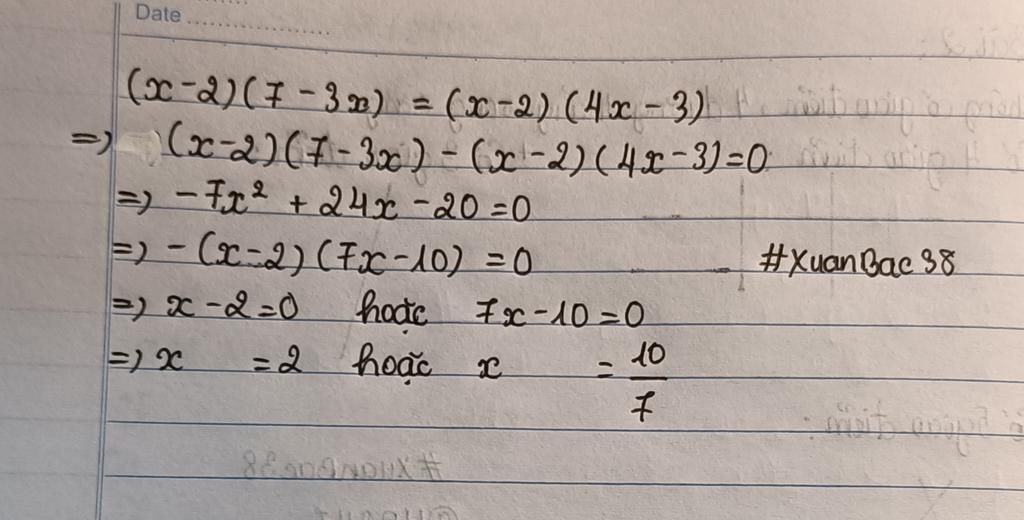 Date
(x-2)(7-3x) = (x-2)(4x-3)
=> (x-2)(7-3x)-(x-2)(4x-3)=0
=> -7x² + 24x -20 =0
=> -(x-2)(7x-10) =0 #XuanBac38
=> x-2=0 hoặc 7x-10=0
=> x =2 hoặc x = 10/7